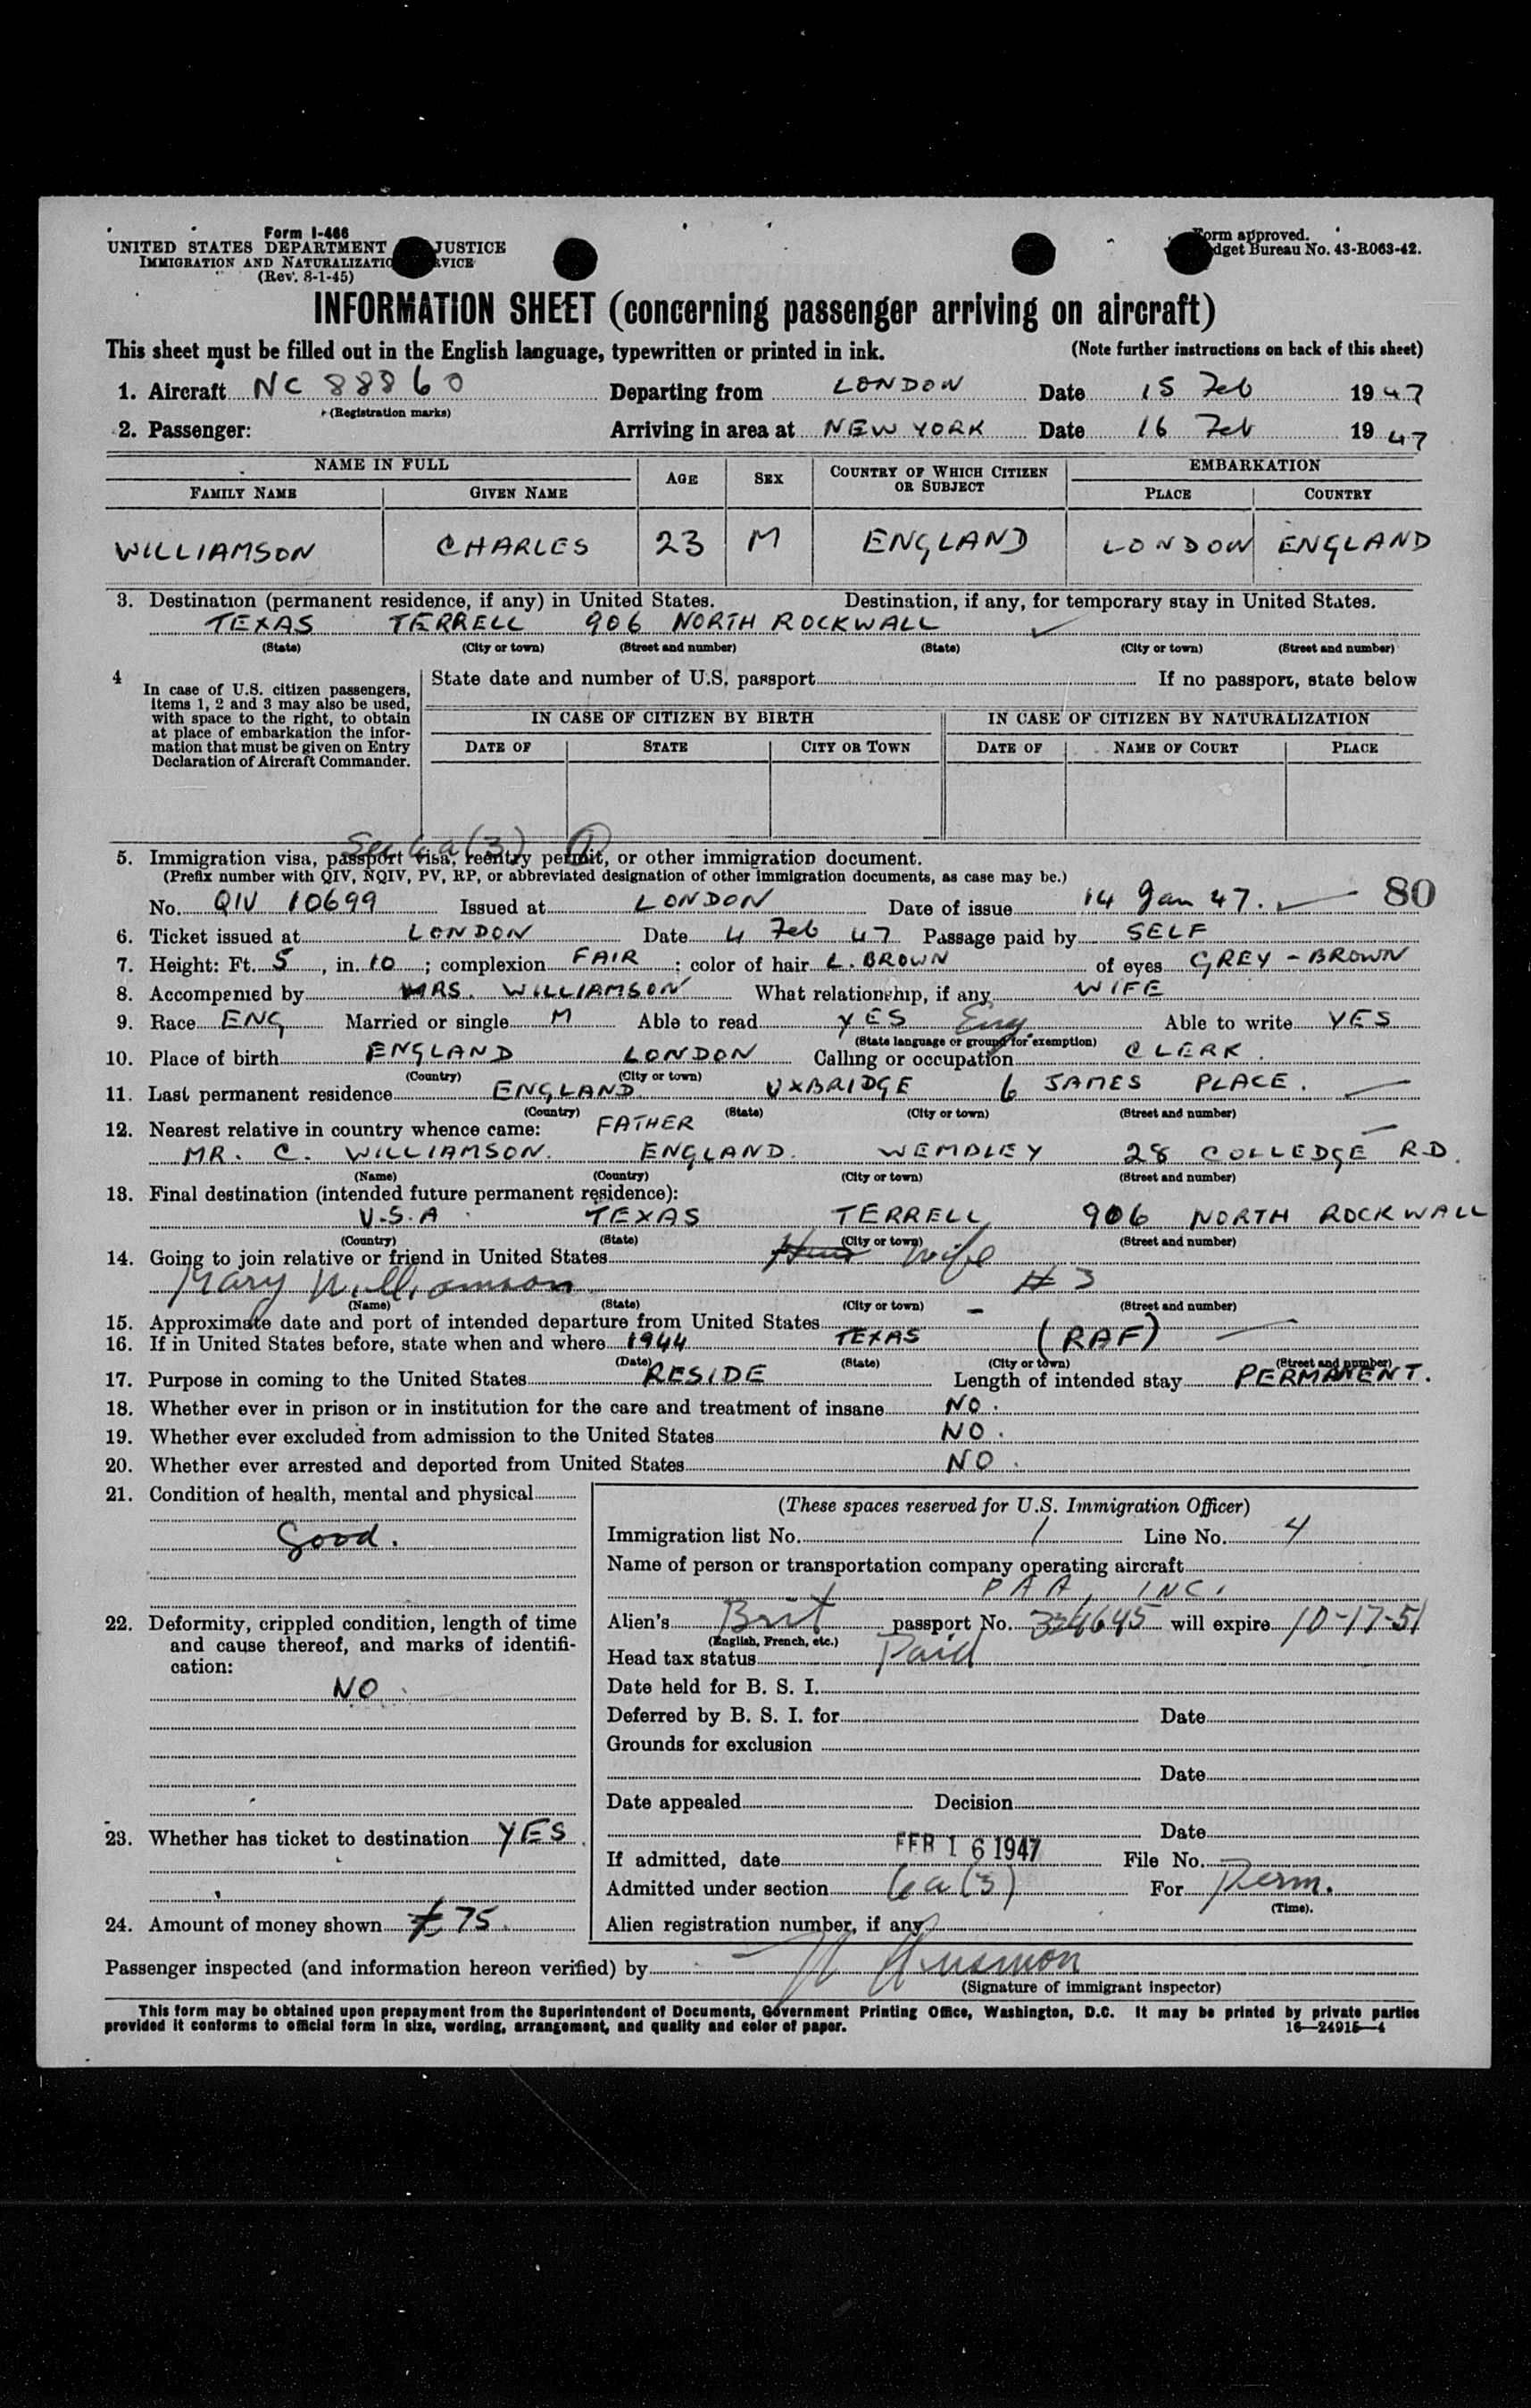 Form I-466
UNITED STATES DEPARTMENT JUSTICE
IMMIGRATION AND NATURALIZATION SERVICE
(Rev. 8-1-45)
Form approved.
Budget Bureau No. 43-R063-42.
INFORMATION SHEET (concerning passenger arriving on aircraft)
This sheet must be filled out in the English language, typewritten or printed in ink. (Note further instructions on back of this sheet)
1. Aircraft NC 88860 Departing from LONDON Date 15 Feb 1947
(Registration marks)
2. Passenger: Arriving in area at NEW YORK Date 16 Feb 1947
NAME IN FULL AGE SEX COUNTRY OF WHICH CITIZEN OR SUBJECT EMBARKATION
FAMILY NAME GIVEN NAME PLACE COUNTRY
WILLIAMSON CHARLES 23 M ENGLAND LONDON ENGLAND
3. Destination (permanent residence, if any) in United States. Destination, if any, for temporary stay in United States.
TEXAS TERRELL 906 NORTH ROCKWALL
(State) (City or town) (Street and number) (State) (City or town) (Street and number)
4 In case of U.S. citizen passengers, items 1, 2 and 3 may also be used, with space to the right, to obtain at place of embarkation the information that must be given on Entry Declaration of Aircraft Commander.
State date and number of U.S. passport If no passport, state below
IN CASE OF CITIZEN BY BIRTH IN CASE OF CITIZEN BY NATURALIZATION
DATE OF STATE CITY OR TOWN DATE OF NAME OF COURT PLACE
Sec 6a(3) 1
5. Immigration visa, passport visa, reentry permit, or other immigration document.
(Prefix number with QIV, NQIV, PV, RP, or abbreviated designation of other immigration documents, as case may be.)
No. QIV 10699 Issued at LONDON Date of issue 14 Jan 47. 80
6. Ticket issued at LONDON Date 4 Feb 47 Passage paid by SELF
7. Height: Ft. 5, in. 10; complexion FAIR; color of hair L. BROWN of eyes GREY - BROWN
8. Accompenied by MRS. WILLIAMSON What relationship, if any WIFE
9. Race ENG Married or single M Able to read YES Eng. Able to write YES
(State language or ground for exemption)
10. Place of birth ENGLAND LONDON Calling or occupation CLERK.
(Country) (City or town)
11. Last permanent residence ENGLAND UXBRIDGE 6 JAMES PLACE.
(Country) (State) (City or town) (Street and number)
12. Nearest relative in country whence came: FATHER
MR. C. WILLIAMSON. ENGLAND. WEMBLEY 28 COLLEDGE RD.
(Name) (Country) (City or town) (Street and number)
13. Final destination (intended future permanent residence):
U.S.A. TEXAS TERRELL 906 NORTH ROCKWALL
(Country) (State) (City or town) (Street and number)
14. Going to join relative or friend in United States wife
Mary Williamson # 3
(Name) (State) (City or town) (Street and number)
15. Approximate date and port of intended departure from United States -
16. If in United States before, state when and where 1944 TEXAS (RAF)
(Date) (State) (City or town) (Street and number)
17. Purpose in coming to the United States RESIDE Length of intended stay PERMANENT.
18. Whether ever in prison or in institution for the care and treatment of insane NO.
19. Whether ever excluded from admission to the United States NO.
20. Whether ever arrested and deported from United States NO.
21. Condition of health, mental and physical
Good.
22. Deformity, crippled condition, length of time and cause thereof, and marks of identification:
NO
23. Whether has ticket to destination YES.
24. Amount of money shown £75.
(These spaces reserved for U.S. Immigration Officer)
Immigration list No. 1 Line No. 4
Name of person or transportation company operating aircraft
PAA, INC.
Alien's Brit passport No. will expire 10-17-51
(English, French, etc.)
Head tax status Paid
Date held for B. S. I.
Deferred by B. S. I. for Date
Grounds for exclusion
Date
Date appealed Decision
Date
If admitted, date FEB 16 1947 File No.
Admitted under section 6a(3) For Perm.
(Time).
Alien registration number, if any
Passenger inspected (and information hereon verified) by
(Signature of immigrant inspector)
This form may be obtained upon prepayment from the Superintendent of Documents, Government Printing Office, Washington, D.C. It may be printed by private parties
provided it conforms to official form in size, wording, arrangement, and quality and color of paper. 16—24915-4